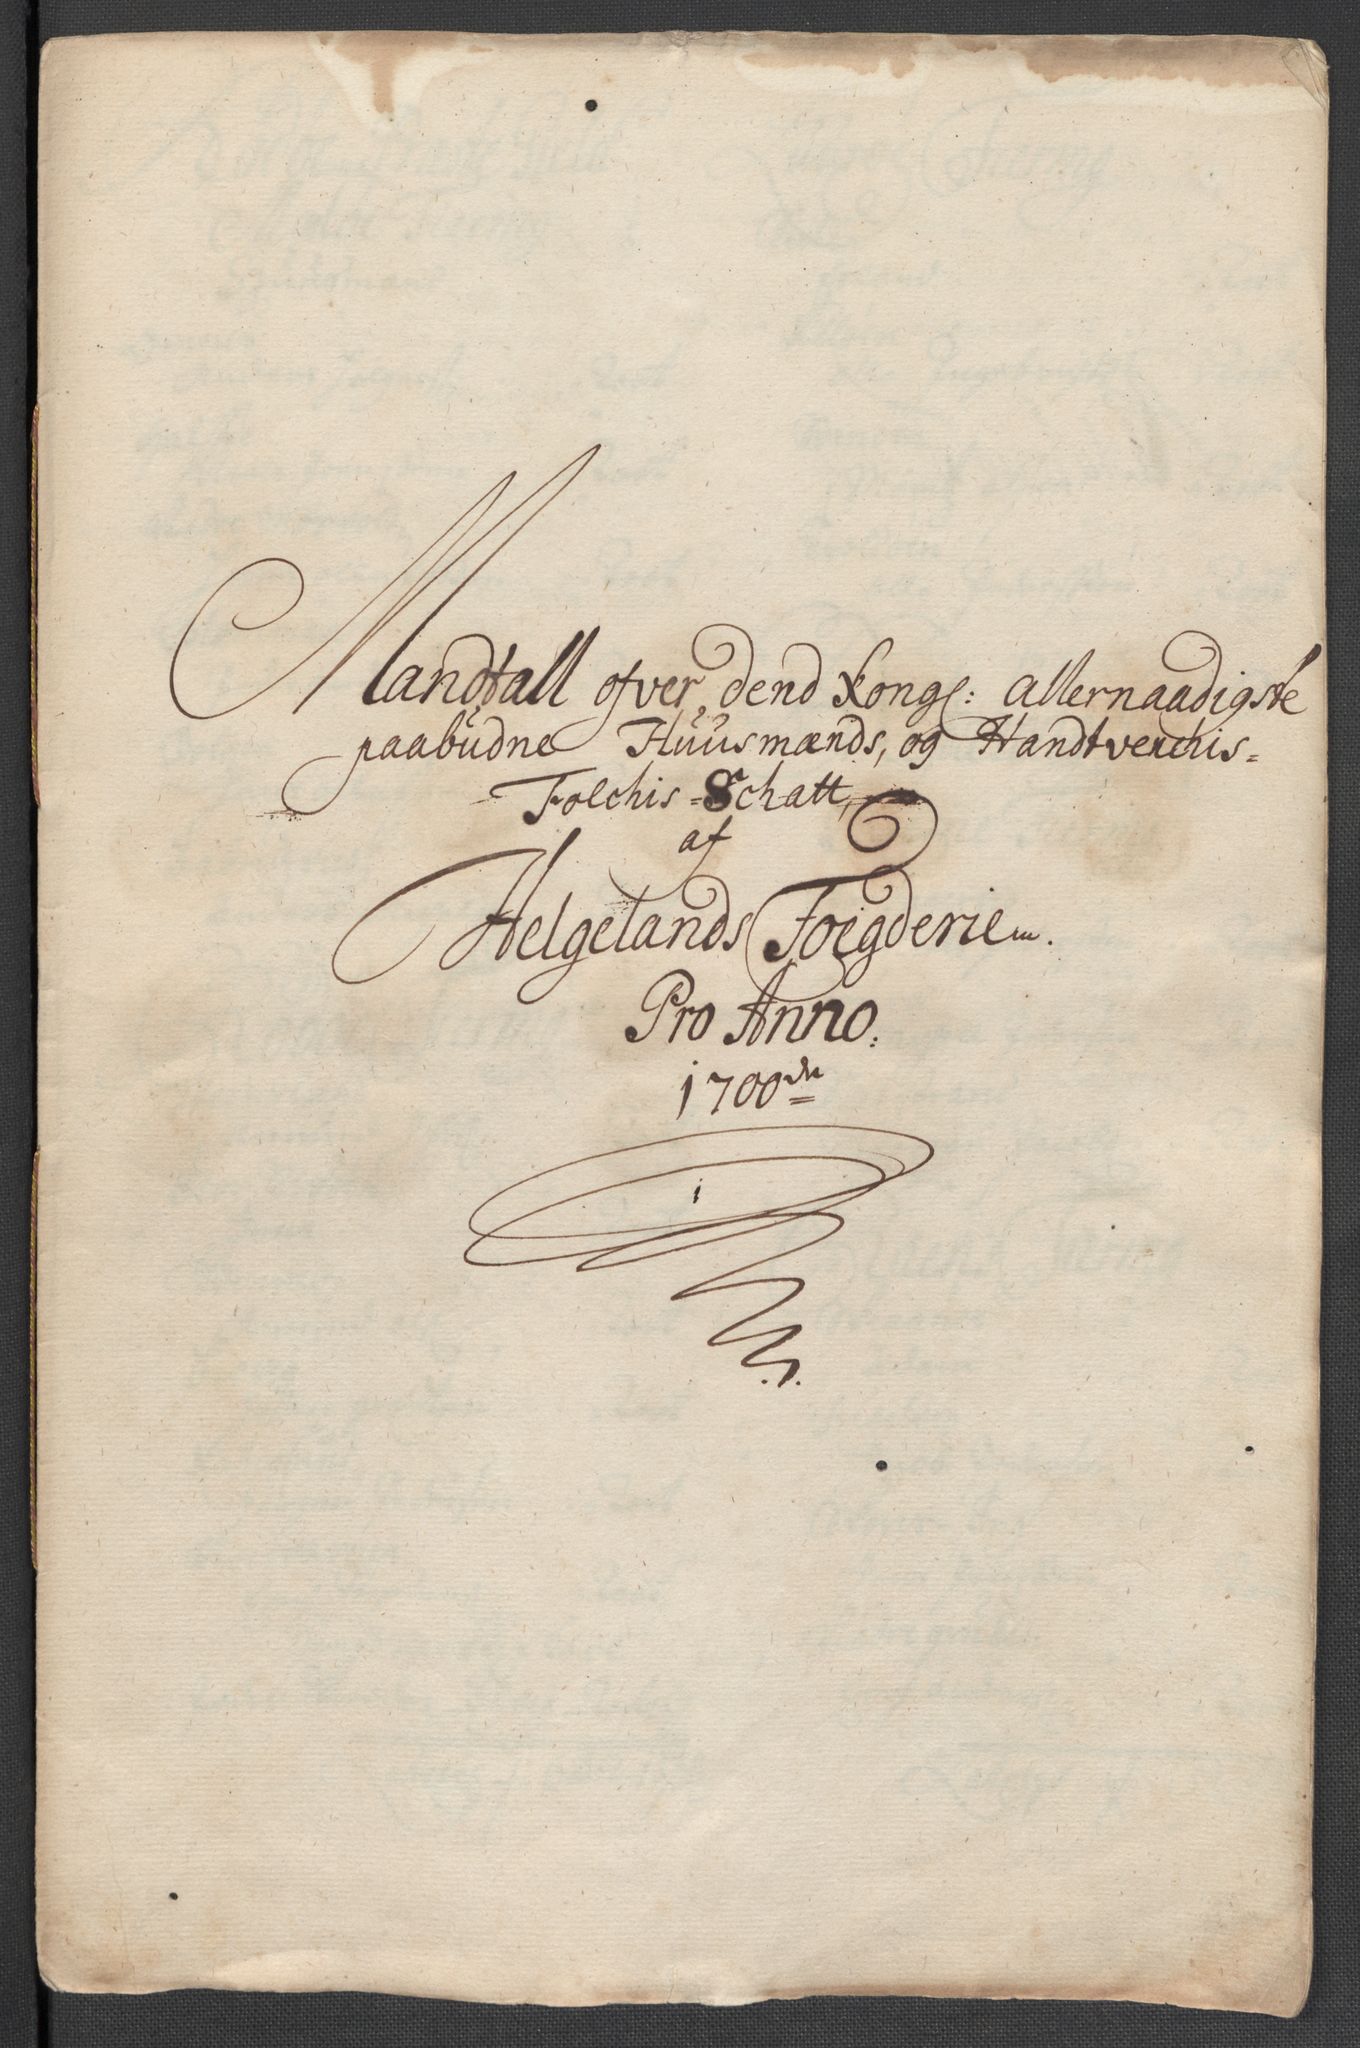 Mandtall ofver dend Kongl: allernaadigste
paabüdne Hüüsmænds, og Handtverchis=
Folchis=Schatt,
af
Helgelands Foegderie
Pro Anno.
1700